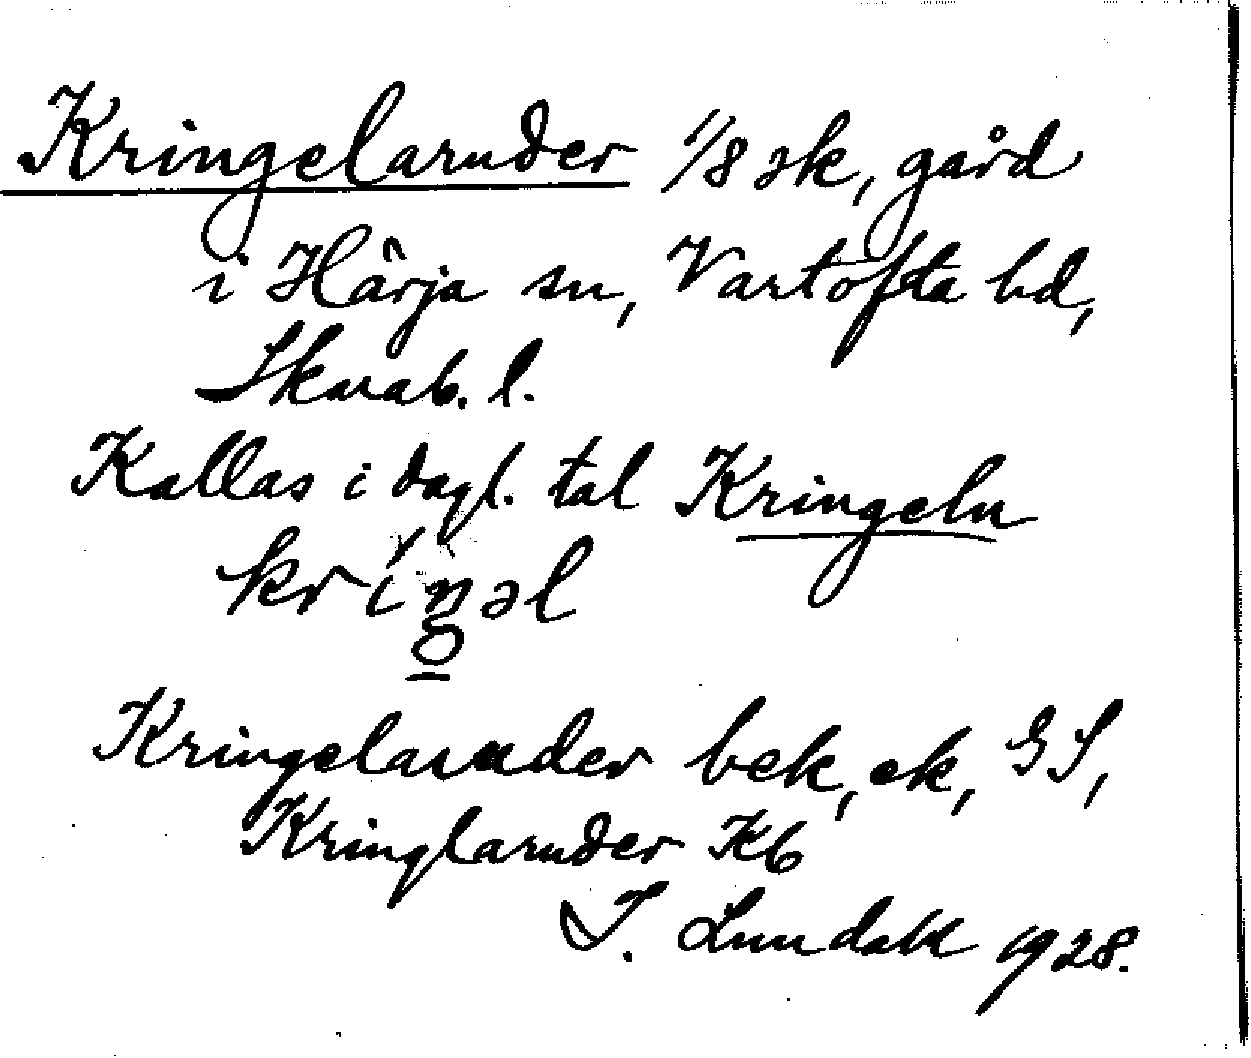 Kringelaruder 1/8 sk, gård
i Härja sn, Vartofta hd,
Skarab. l.
Kallas i dagl. tal Kringeln
kríŋəl
Kringelaruder bek, ek, GS,
Kringlaruder Kb
I. Lundahl 1928.